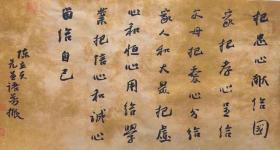 把忠心献给國
家把孝心呈给
父母把爱心分给
家人和大衆把虚
心和恒心用给學
業把信心和誠心
留给自己
陈立夫
先生语